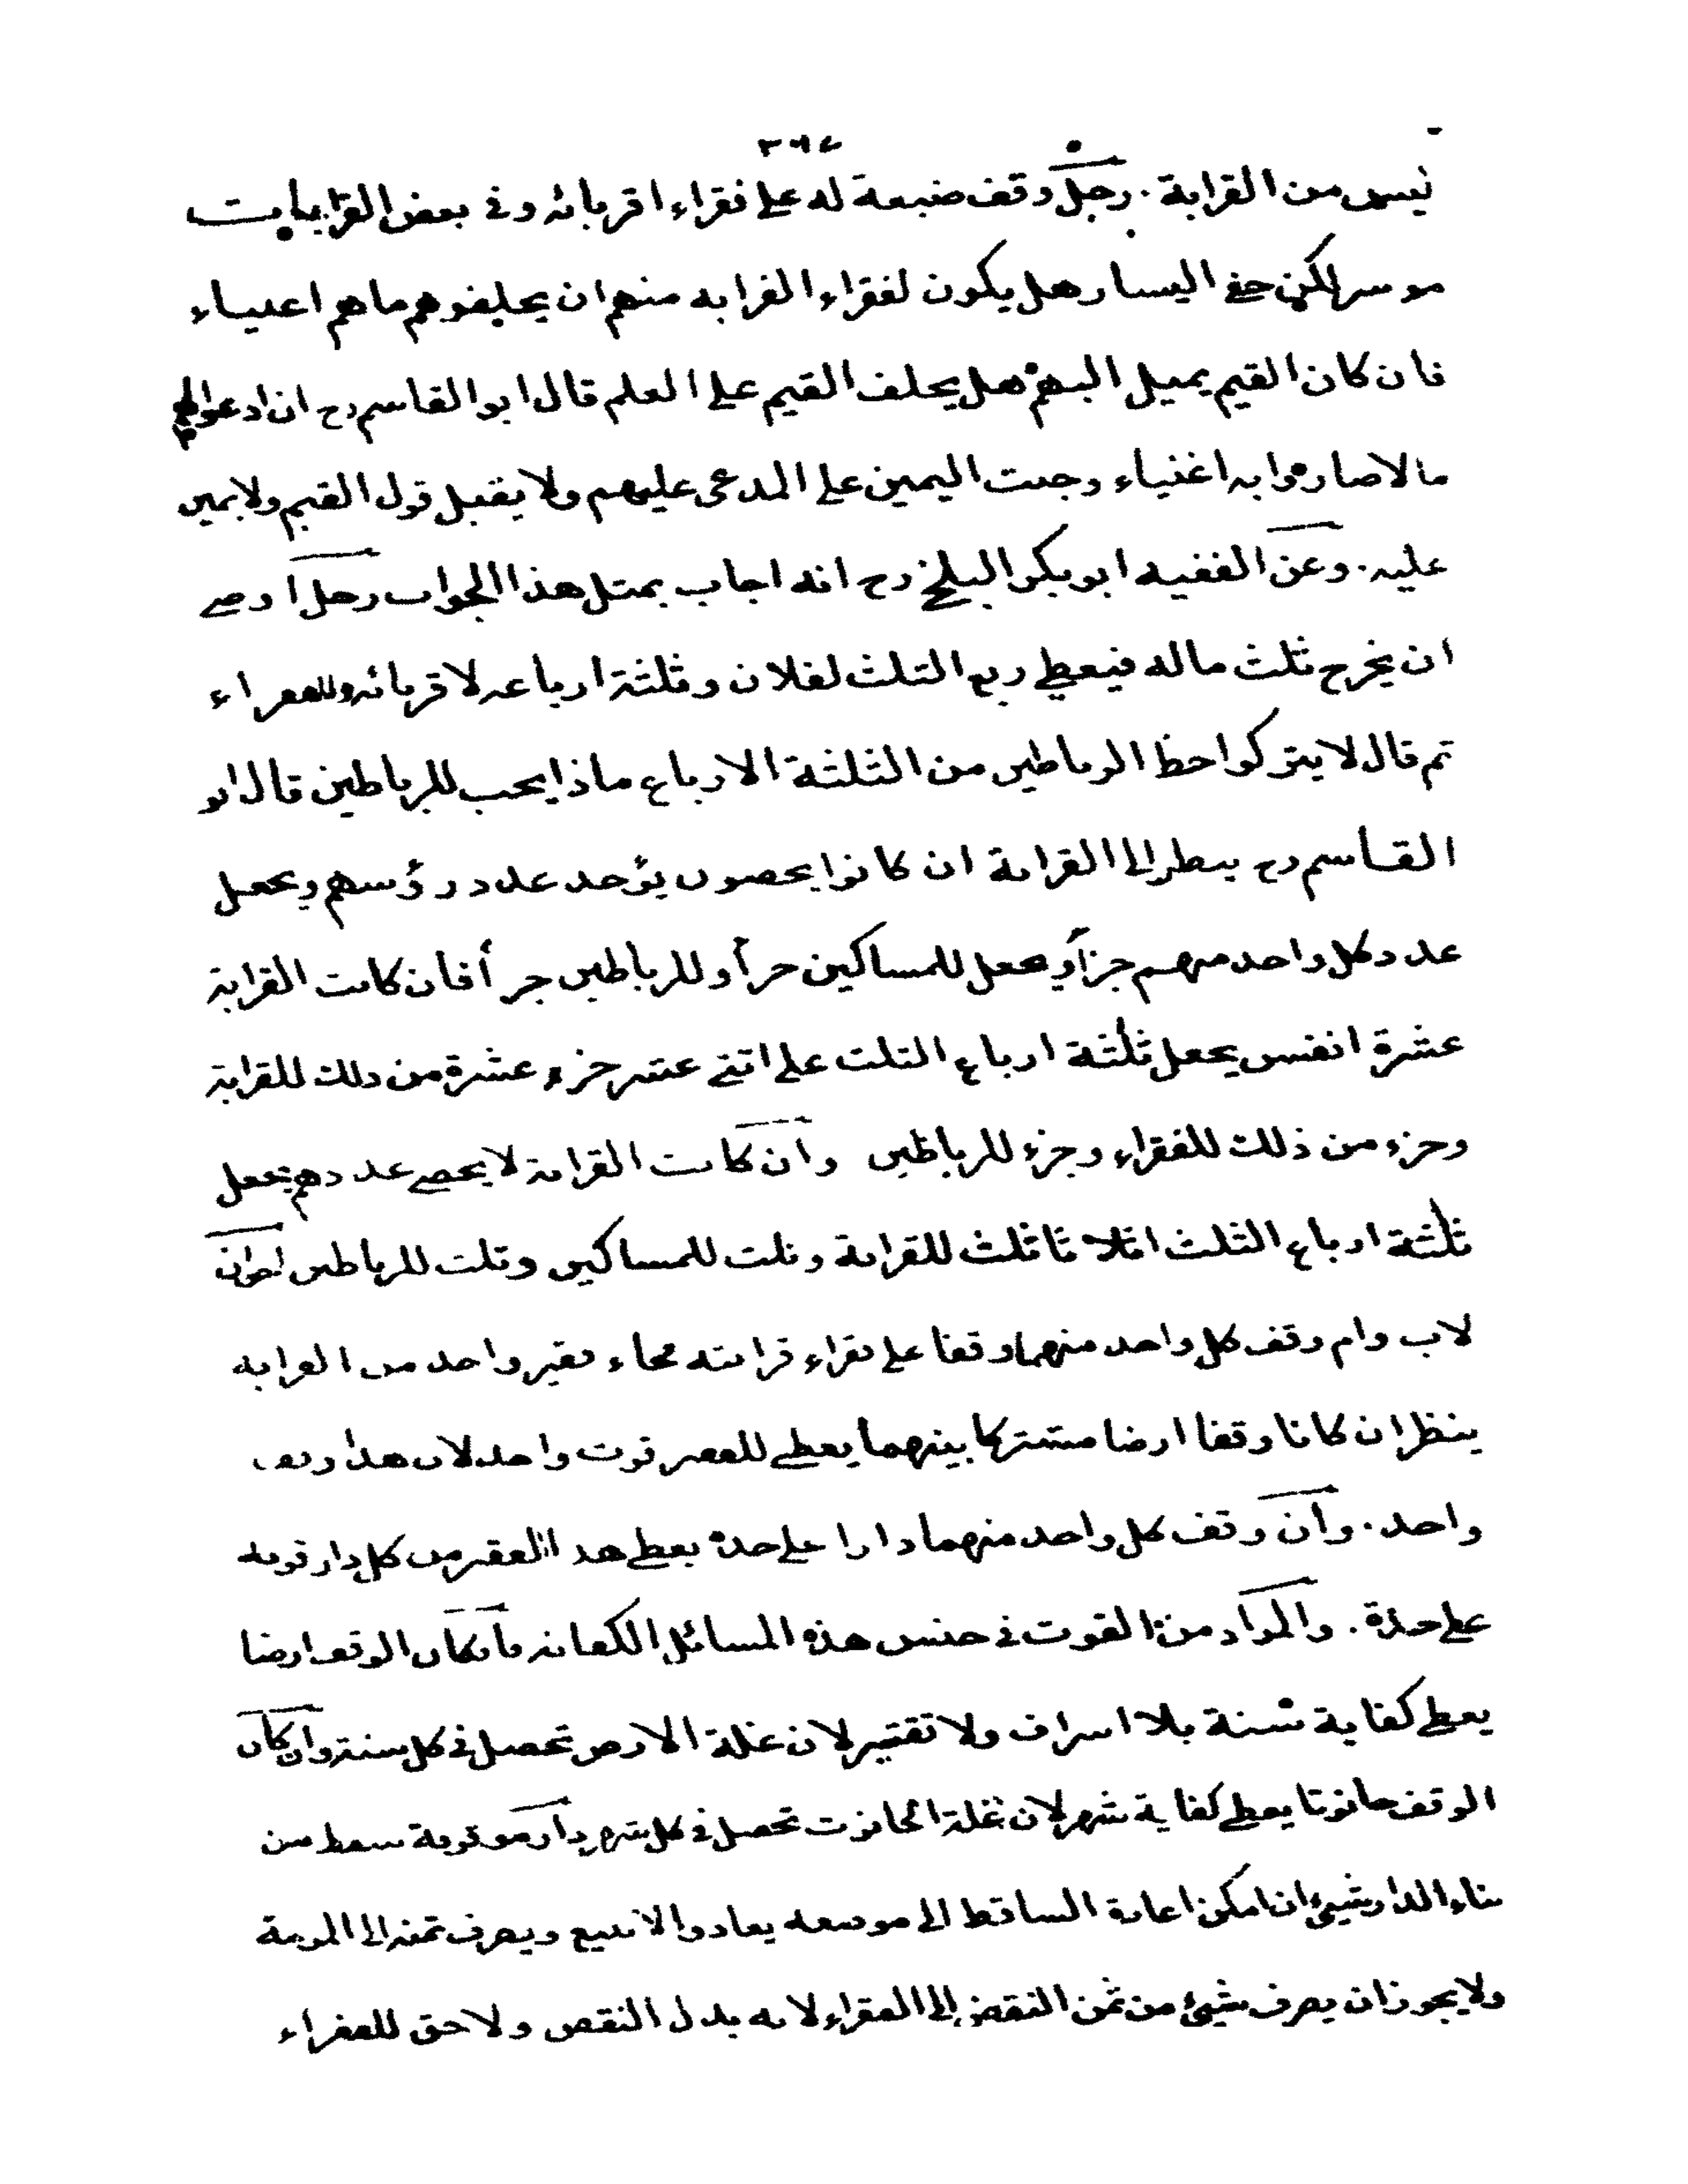 ٣٦٧
ليس من القرابة . رجل وقف ضيعة له على فقراء اقربائه وفى بعض القرابات
موسر لكن خفى اليسار هل يكون لفقراء القرابه منهم ان يحلفوهم ماهم اغنياء
فان كان القيم يميل اليهم هل يحلف القيم على العلم قال ابو القاسم رح ان ادعوا
مالا صاروا به اغنياء وجبت اليمين على المدعى عليهم ولا يقبل قول القيم ولا يمين
عليه . وعن الفقيه ابو بكر البلخى رح انه اجاب بمثل هذا الجواب رجل اوصى
ان يخرج ثلث ماله فيعطى ربع الثلث لفلان وثلثة ارباعه لاقربائه وللفقراء
ثم قال لا يتركوا حظ الرباطين من الثلثة الارباع ماذا يجب للرباطين قال ابو
القاسم رح ينظر الى القرابة ان كانوا يحصون يؤخذ عدد رؤسهم ويجعل
عدد كل واحد منهم جزأ ويجعل للمساكين جزأ وللرباطين جزأ فان كانت القرابة
عشرة انفس يجعل ثلثة ارباع الثلث على اثنى عشر جزء عشرة من ذلك للقرابة
وجزء من ذلك للفقراء وجزء للرباطين وان كانت القرابة لا يحصى عددهم يجعل
ثلثة ارباع الثلث اثلاثا ثلث للقرابة وثلث للمساكين وثلث للرباطين اخوان
لاب وام وقف كل واحد منهما وقفا على فقراء قرابته فجاء فقير واحد من القرابه
ينظر ان كانا وقفا ارضا مشتركا بينهما يعطى للفقير قوت واحد لان هذا وقف
واحد . وان وقف كل واحد منهما دارا على حدة يعطى هذا الفقير من كل دار قوته
على حدة . والمراد من القوت فى جنس هذه المسائل الكفاية فان كان الوقف ارضا
يعطى كفاية سنة بلا اسراف ولا تقتير لان غلة الارض تحصل فى كل سنة وان كان
الوقف حانوتا يعطى كفاية شهر لان غلة الحانوت تحصل فى كل شهر دار موقوفة سقط من
بناء الدار شيئ ان امكن اعادة الساقط الى موضعه يعاد والا يبيع ويصرف ثمنه الى المرمة
ولا يجوز ان يصرف شيئ من ثمن النقض الى الفقراء لانه بدل النقض ولا حق للفقراء